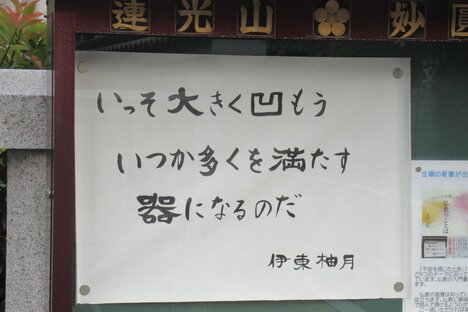 連光山 妙圓
いっそ大きく凹もう
いつか多くを満たす
器になるのだ
伊東柚月
住職の著書が出
仏教のことば